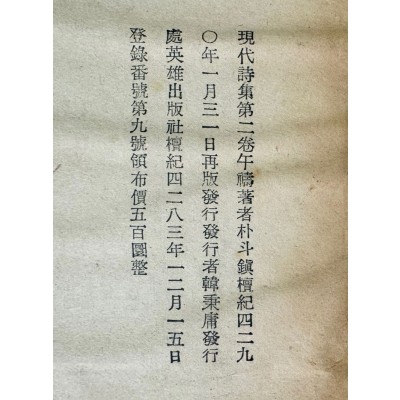 現代詩集第二卷午禱著者朴斗鎭檀紀四二九
〇年一月三一日再版發行發行者韓秉庸發行
處英雄出版社檀紀四二八三年一二月一五日
登錄番號第九號領布價五百圜整